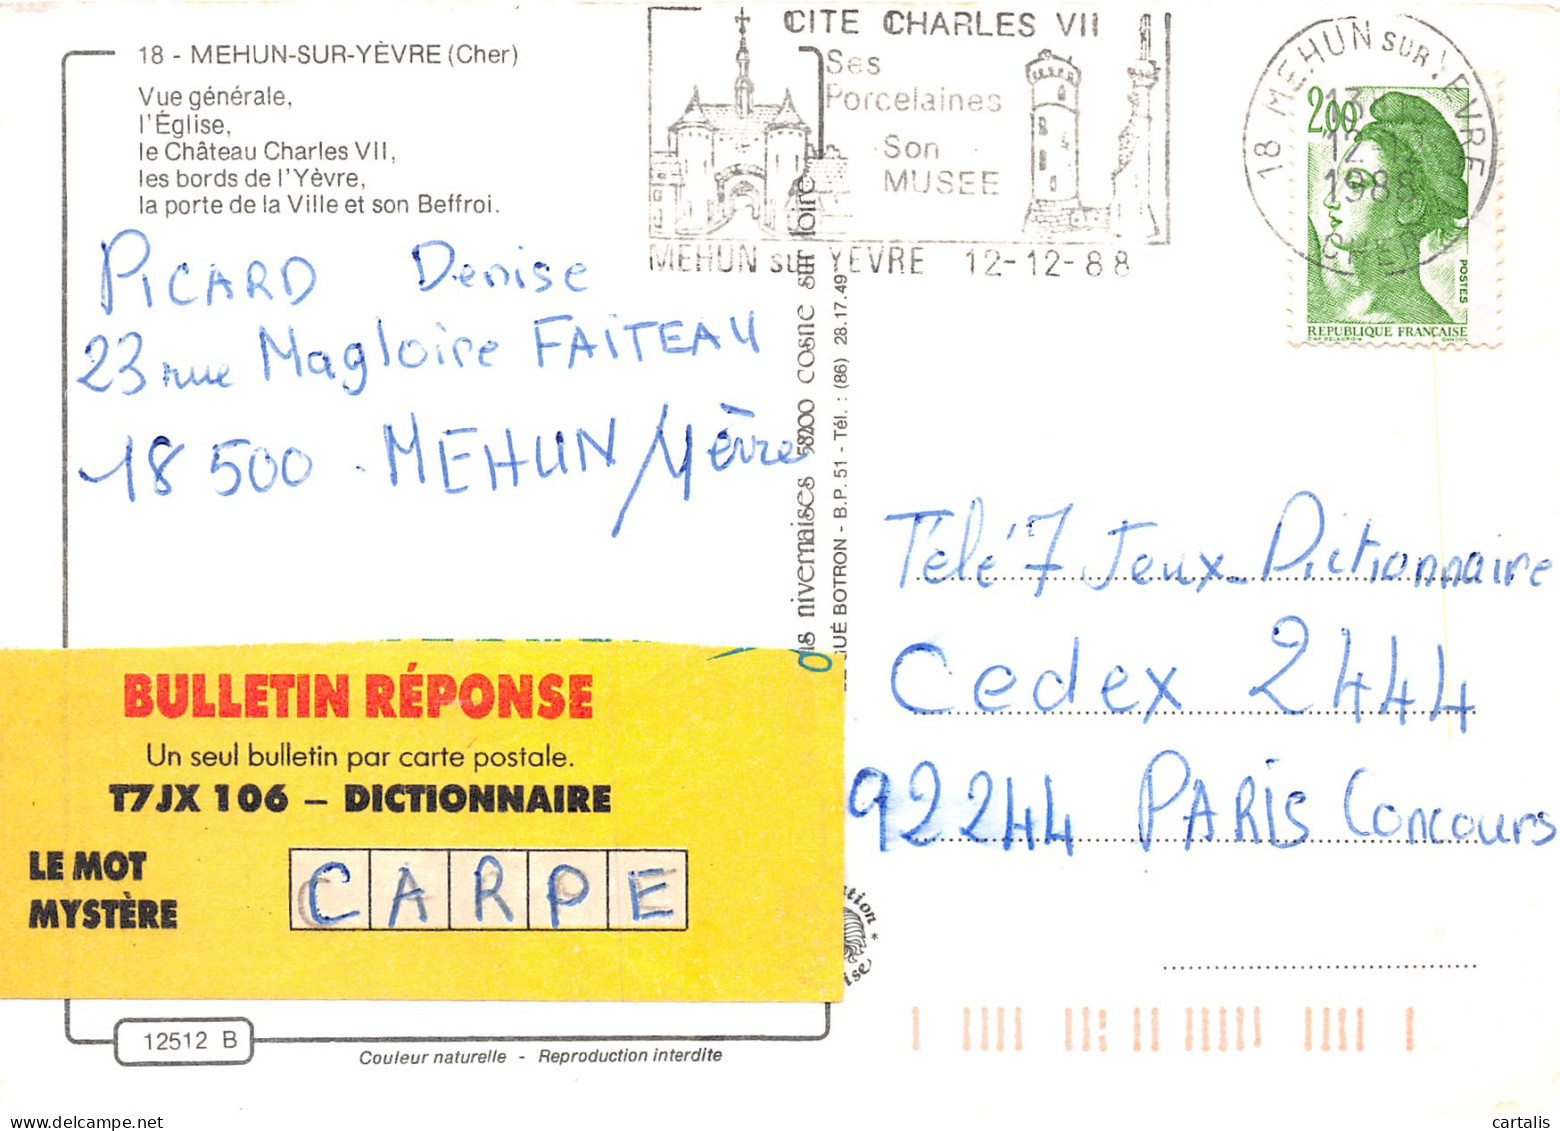 18 - MEHUN-SUR-YÈVRE (Cher)
Vue générale,
l'Église,
le Château Charles VII,
les bords de l'Yèvre,
la porte de la Ville et son Beffroi.
CITE CHARLES VII
Ses
Porcelaines
Son
MUSEE
MEHUN sur YEVRE 12-12-88
18 MEHUN SUR YEVRE
13
12-12
1988
CHER
2,00
POSTES
REPUBLIQUE FRANÇAISE
D'AP. DELACROIX GANDON
PICARD Denise
23 rue Magloire FAITEAU
18 500 . MEHUN / Yèvre
nivernaises 58200 cosne sur loire
GUÉ BOTRON - B.P. 51 - Tél. : (86) 28.17.49
Télé 7 Jeux_Dictionnaire
Cedex 2444
92244 PARIS Concours
BULLETIN RÉPONSE
Un seul bulletin par carte postale.
T7JX 106 – DICTIONNAIRE
LE MOT
MYSTÈRE
CARPE
12512 B
Couleur naturelle - Reproduction interdite
cartalis